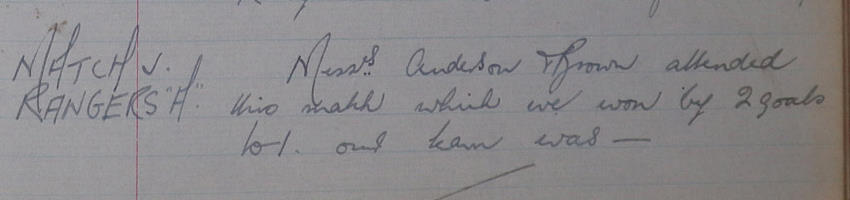 MATCH v. Messrs Anderson & Brown attended
RANGERS "A". this match which we won by 2 goals
to 1. our team was —